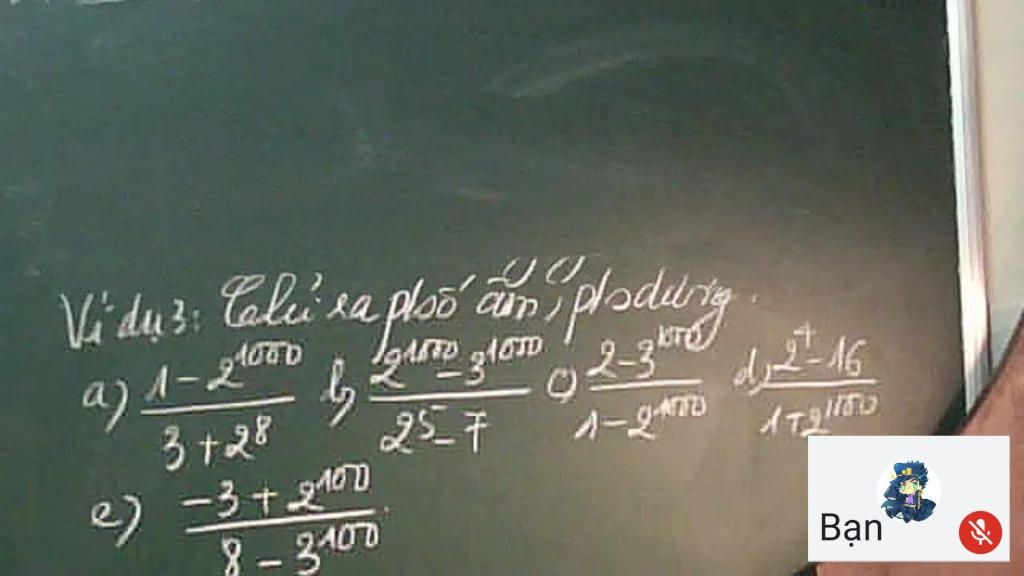 Ví dụ 3: Chỉ ra phsố âm, phs dương.
a) (1 - 2^1000)/(3 + 2^8) b) (2^1000 - 3^1000)/(2^5 - 7) c) (2 - 3^100)/(1 - 2^100) d) (2^4 - 16)/(1 + 2^100)
e) (-3 + 2^100)/(8 - 3^100).
Bạn